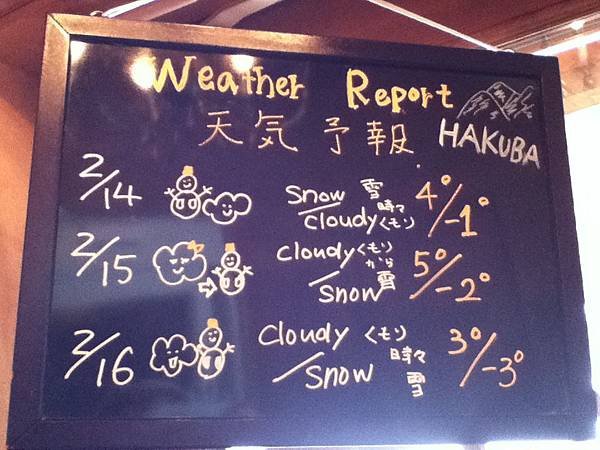 Weather Report
天気予報
HAKUBA
2/14
Snow 雪
時々
/cloudy くもり
4°/-1°
2/15
cloudy くもり
から
/snow 雪
5°/-2°
2/16
cloudy くもり
時々
/snow 雪
3°/-3°